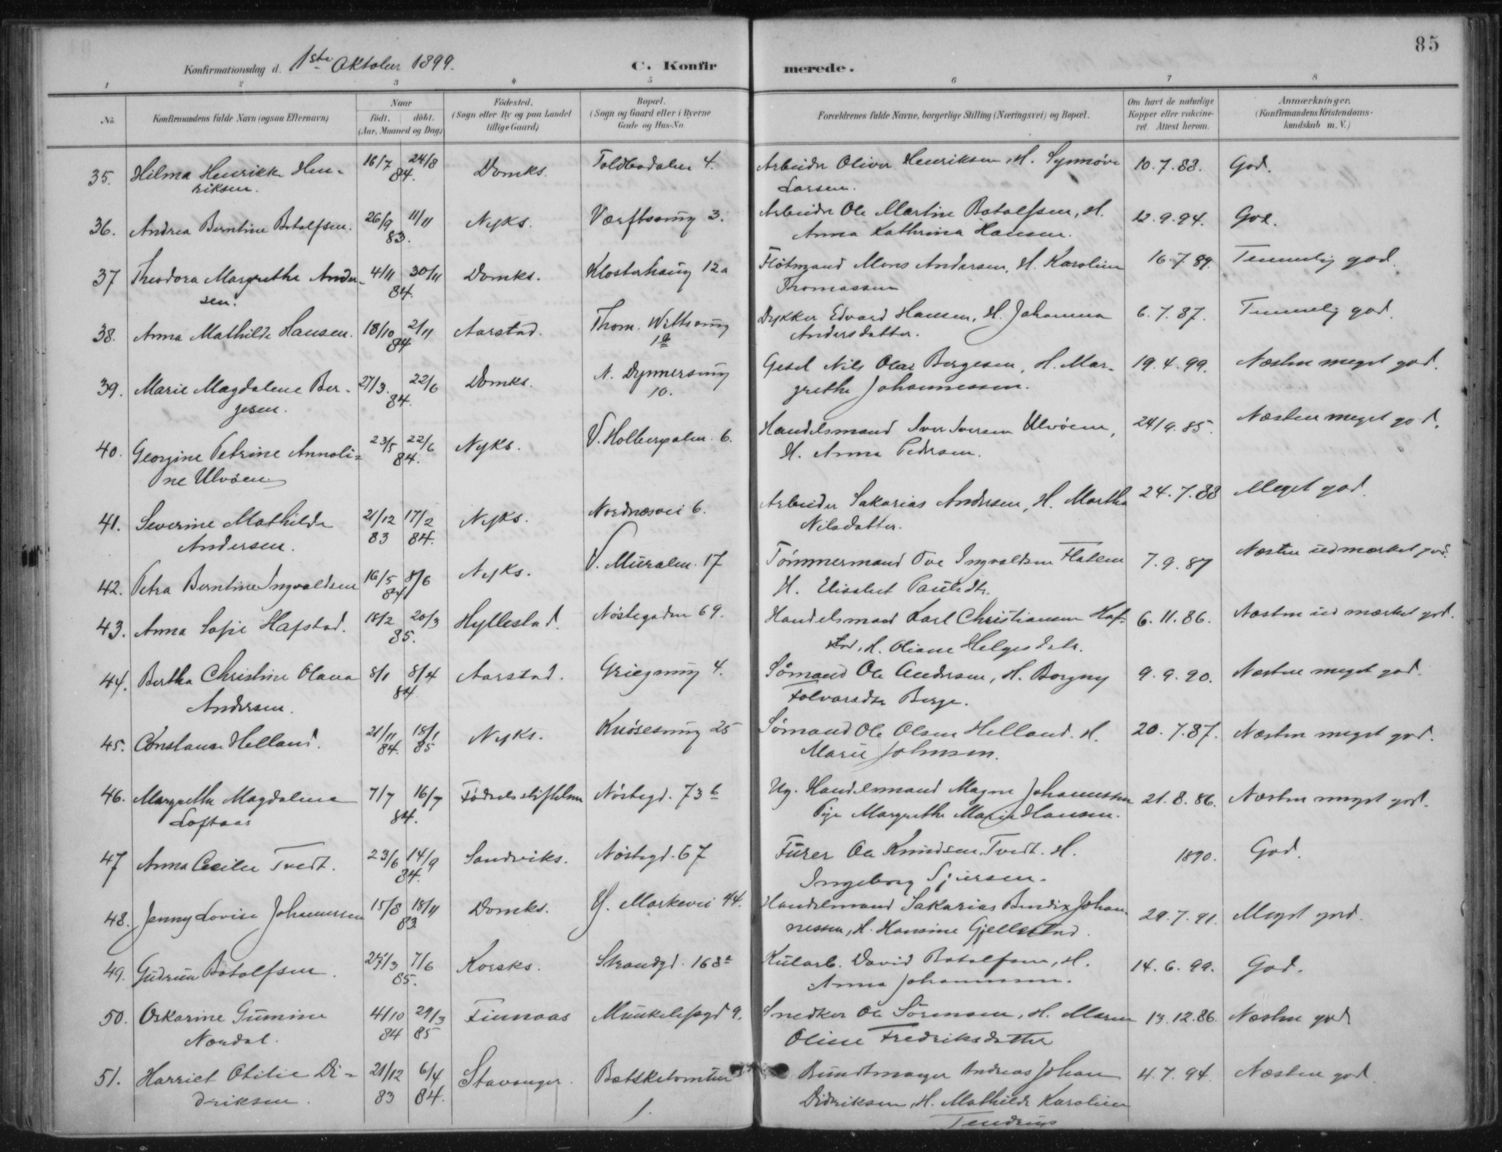 85
Konfirmationsdag d. 1ste Oktober 1899.
C. Konfirmerede.
1 2 3 4 5 6 7 8
No.
Konfirmandens fulde Navn (ogsaa Efternavn)
Naar
født. døbt.
(Aar, Maaned og Dag)
Fødested.
(Sogn eller By og paa Landet
tillige Gaard)
Bopæl.
(Sogn og Gaard eller i Byerne
Gade og Hus-No.
Forældrenes fulde Navne, borgerlige Stilling (Næringsvei) og Bopæl.
Om havt de naturlige
Kopper eller vakcine-
ret. Attest herom.
Anmærkninger.
(Konfirmandens Kristendoms-
kundskab m. V.)
35. Hilma Henrikke Hen- 16/7 24/8 Domks. Toldbodalm 4. Arbeider Oliver Henriksen, H. Synnøve 10.7.88. God.
riksen. 84. Larsen.
36. Andrea Berntine Botolfsen. 26/9 11/11 Nyks. Værftsmug 3. Arbeider Ole Martin Botolfsen, H. 12.9.94. God.
83. Anna Kathrina Hansen.
37 Theodora Margrethe Ander- 4/11 30/11 Domks. Klosterhaug 12a Fløtmand Mons Andersen, H. Karoline 16.7.89. Temmelig god.
sen. 84. Thomassen
38. Anna Mathilde Hansen. 18/10 2/11 Aarstad. Thom. Dykker Edvard Hansen, H. Johanna 6.7.87. Temmelig god.
84 Andersdatter.
39. Marie Magdalene Ber- 27/3. 22/6 Domks. N. Dynnersmug Gesel Nils Olai Bergesen, H. Mar- 19.4.99. Næsten meget god.
gesen. 84. 10. grethe Johannessen.
40. Georgine Petrine Annoli- 23/5 22/6 Nyks. V. Holbergsalm. 6. Handelsmand Iver Iversen Ulvøen, 24/9.85. Næsten meget god.
ne Ulvøen 84. H. Anna Pedersen.
41. Severine Mathilde 21/12 17/2 Nyks. Nordnesvei 6. Arbeider Sakarias Andersen, H. Martha 24.7.88 Meget god.
Andersen. 83 84. Nilsdatter.
42. Petra Berntine Ingvaldsen 16/5 8/6 Nyks. V. Muralm. 17 Tømmermand Ove Ingvaldsen 7.9.87 Næsten udmærket god.
84. H. Elisabet
43. Anna Sofie Hafstad. 18/2 20/3 Hyllestad. Nøstegaden 69. Handelsmand Karl Christiansen Haf- 6.11.86. Næsten udmærket god.
85. stad, H. Oliane Helgesdatr.
44. Bertha Christine Olava 8/1 8/4 Aarstad. Griegsmug 4. Sømand Ole Andersen, H. Borgny 9.9.90. Næsten meget god.
Andersen. 84 Folvarsdtr Berge.
45. Constanse Helland. 21/11 18/1 Nyks. Knøsesmug 25 Sømand Ole Olsen Helland. H. 20.7.87. Næsten meget god.
84. 85 Marie Johnsen.
46. Margrethe Magdalena 7/7 16/7 Fødselsstiftelsen Nøstegd. 73b Ug. Handelsmand Magne Johannessen 21.8.86. Næsten meget god.
Loftaas 84. Pige Margrethe Marie Hansen.
47 Anna Cecilie Tvedt. 23/6 14/9 Sandviks. Nøstegd. 67 Fører Ole Knudsen Tvedt. H. 1890. God.
84. Ingeborg Sjursen.
48. Jenny Lovise Johannessen 15/8 18/11 Domks. Ø. Markevei 44. Handelsmand Sakarias Bendix Johan- 29.7.91. Meget god.
83 nessen, H. Hansine Gjellestad.
49. Gudrun Botolfsen. 29/3 7/6 Korsks. Strandgd. 168 Kularb. David Botolfsen, H. 14.6.99. God.
85. Anna Johannessen.
50. Oskarine Gumine 4/10 29/3 Finnaas Munkebfsgd 9. Snedker Ole Sørensen, H. Maren 13.12.86. Næsten god
Nordal. 84 85 Oline Fredriksdatter
51. Harriet Otilie Di- 21/12 6/4 Stavanger. Bundtmager Andreas Johan 4.7.94. Næsten god
driksen. 83 84. 1. Didriksen, H. Mathilde Karoline